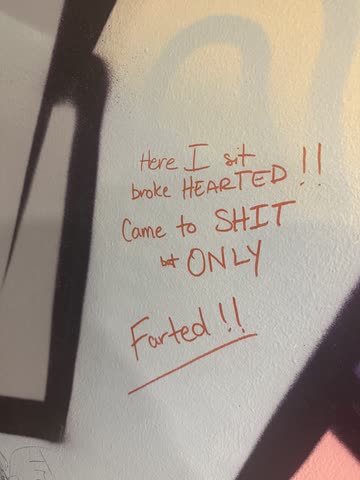 Here I sit
broke HEARTED !!
Came to SHIT
but ONLY
Farted !!